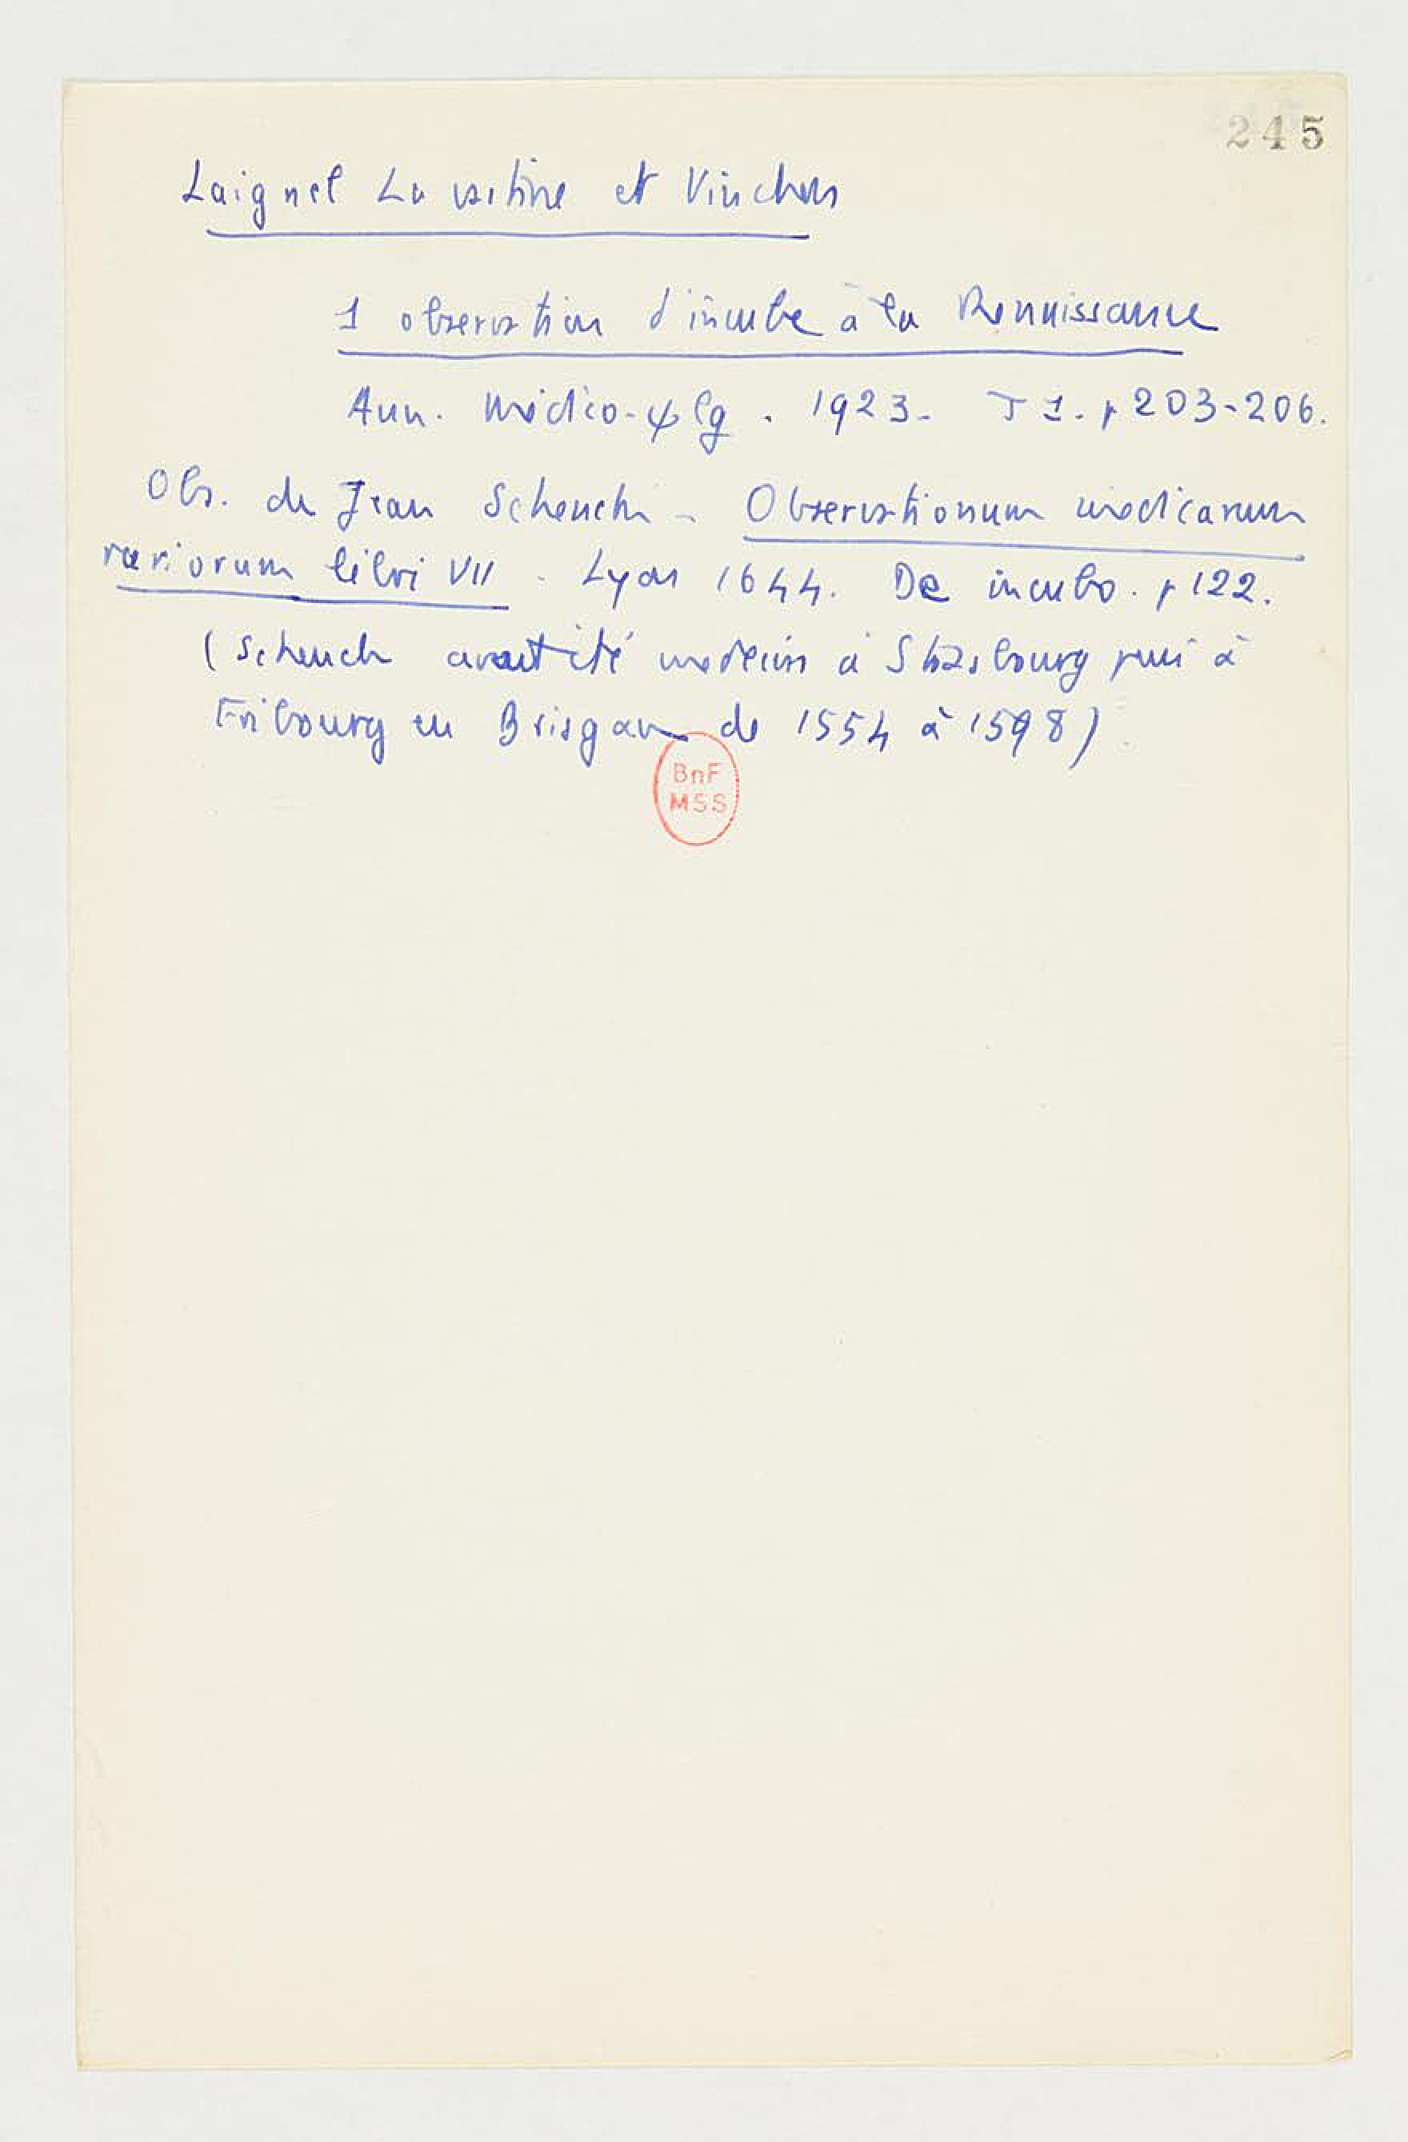 245
Laignel Lavastine et Vinchon
1 observation d'incube à la Renaissance
Ann. médico-ψlg. 1923. T 1. p 203-206.
Obs. de Jean Schenck - Observationum medicarum
rariorum libri VII. Lyon 1644. De incubo. p 122.
(Schenck avait été médecin à Strasbourg puis à
Fribourg en Brisgau de 1554 à 1598).
BnF
MSS